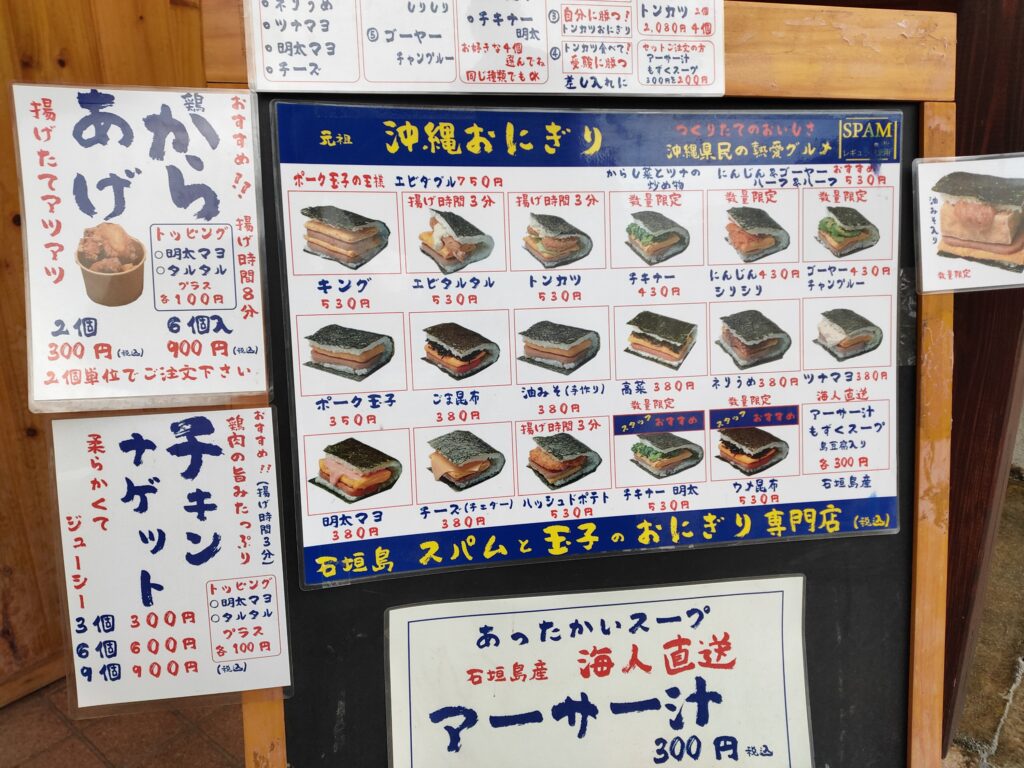 ●ネリうめ
●ツナマヨ
●明太マヨ
●チーズ
しりしり
⑤ゴーヤー
チャンプルー
●チキナー
明太
お好きな4個
選んでね
同じ種類でもOK
③自分に勝つ!
トンカツおにぎり
④トンカツ食べて!
受験に勝つ
差し入れに
トンカツ 2個
2,080円4個
セットご注文の方
アーサー汁
もずくスープ
300円を200円
おすすめ!!
揚げ時間8分
鶏からあげ
揚げたてアツアツ
トッピング
○明太マヨ
○タルタル
プラス
各100円
2個 6個入
300円(税込) 900円(税込)
2個単位でご注文下さい
おすすめ!!(揚げ時間3分)
鶏肉の旨みたっぷり
チキン
ナゲット
柔らかくて
ジューシー
トッピング
○明太マヨ
○タルタル
プラス
各100円
3個 300円
6個 600円
9個 900円
(税込)
元祖 沖縄おにぎり
つくりたてのおいしさ
沖縄県民の熱愛グルメ
SPAM
ポーク玉子の王様 エビタブル750円
からし菜とツナの
炒め物
にんじん&ゴーヤー おすすめ
ハーフ&ハーフ 530円
揚げ時間3分 揚げ時間3分 数量限定 数量限定 数量限定
キング
530円
エビタルタル
530円
トンカツ
530円
チキナー
430円
にんじん430円
シリシリ
ゴーヤー430円
チャンプルー
ポーク玉子
350円
ごま昆布
380円
油みそ(手作り)
380円
高菜380円
数量限定
ネリうめ380円
数量限定
ツナマヨ380円
海人直送
揚げ時間3分
スタッフおすすめ
スタッフおすすめ
アーサー汁
もずくスープ
島豆腐入り
各300円
石垣島産
明太マヨ
380円
チーズ(チェダー)
380円
ハッシュドポテト
530円
チキナー明太
530円
ウメ昆布
530円
石垣島 スパムと玉子のおにぎり専門店(税込)
油みそ入り
数量限定
あったかいスープ
石垣島産 海人直送
アーサー汁
300円税込